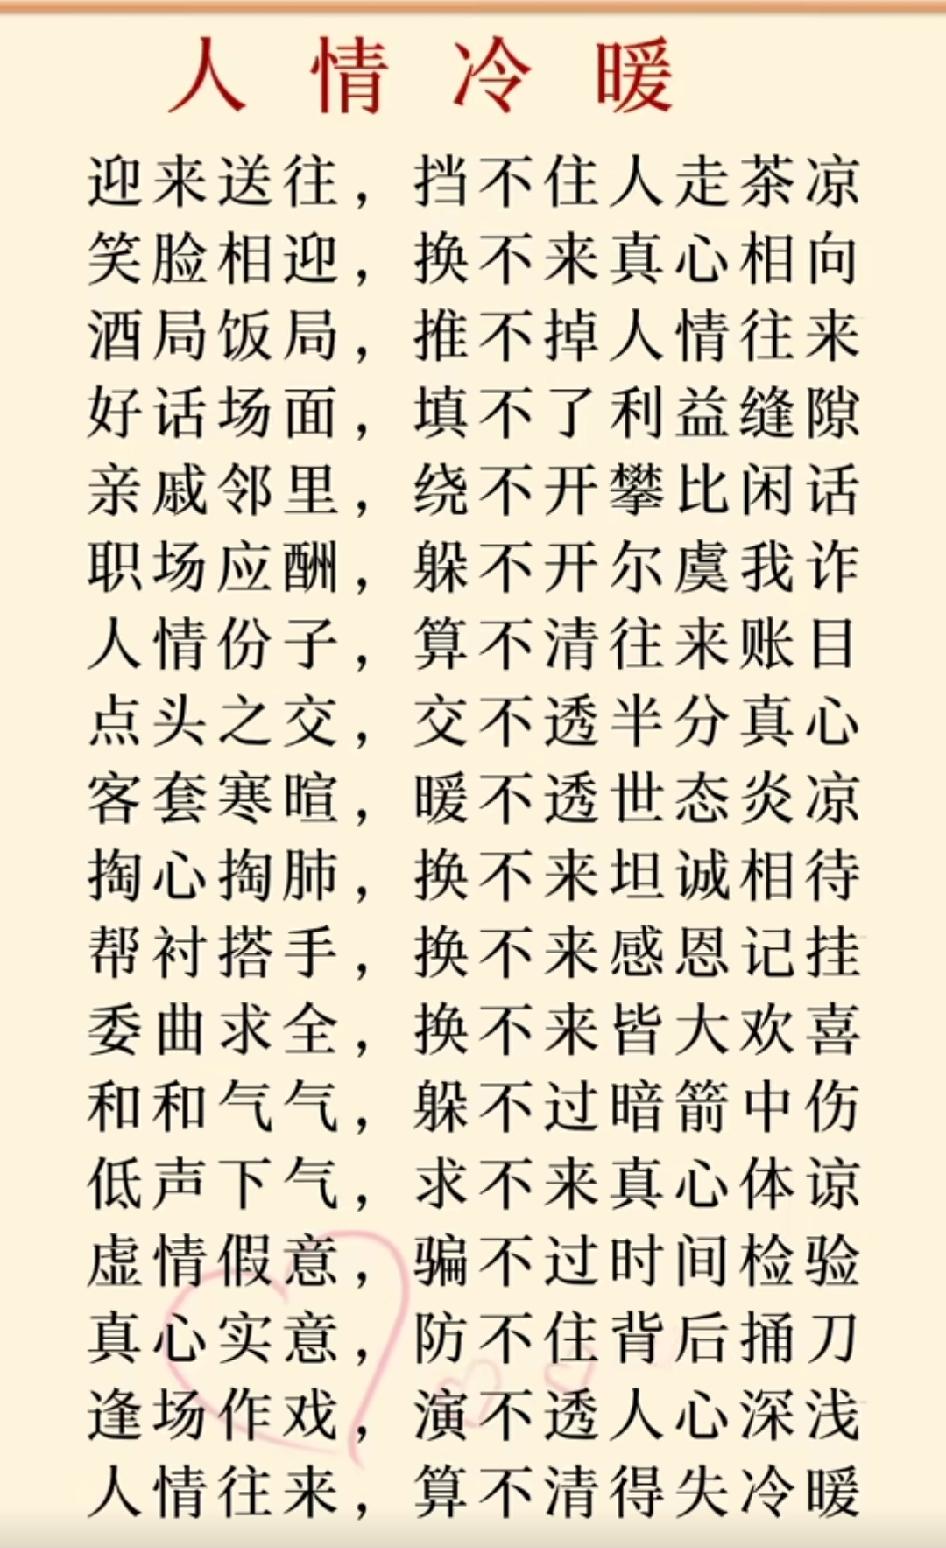 人情冷暖
迎来送往，挡不住人走茶凉
笑脸相迎，换不来真心相向
酒局饭局，推不掉人情往来
好话场面，填不了利益缝隙
亲戚邻里，绕不开攀比闲话
职场应酬，躲不开尔虞我诈
人情份子，算不清往来账目
点头之交，交不透半分真心
客套寒暄，暖不透世态炎凉
掏心掏肺，换不来坦诚相待
帮衬搭手，换不来感恩记挂
委曲求全，换不来皆大欢喜
和和气气，躲不过暗箭中伤
低声下气，求不来真心体谅
虚情假意，骗不过时间检验
真心实意，防不住背后捅刀
逢场作戏，演不透人心深浅
人情往来，算不清得失冷暖